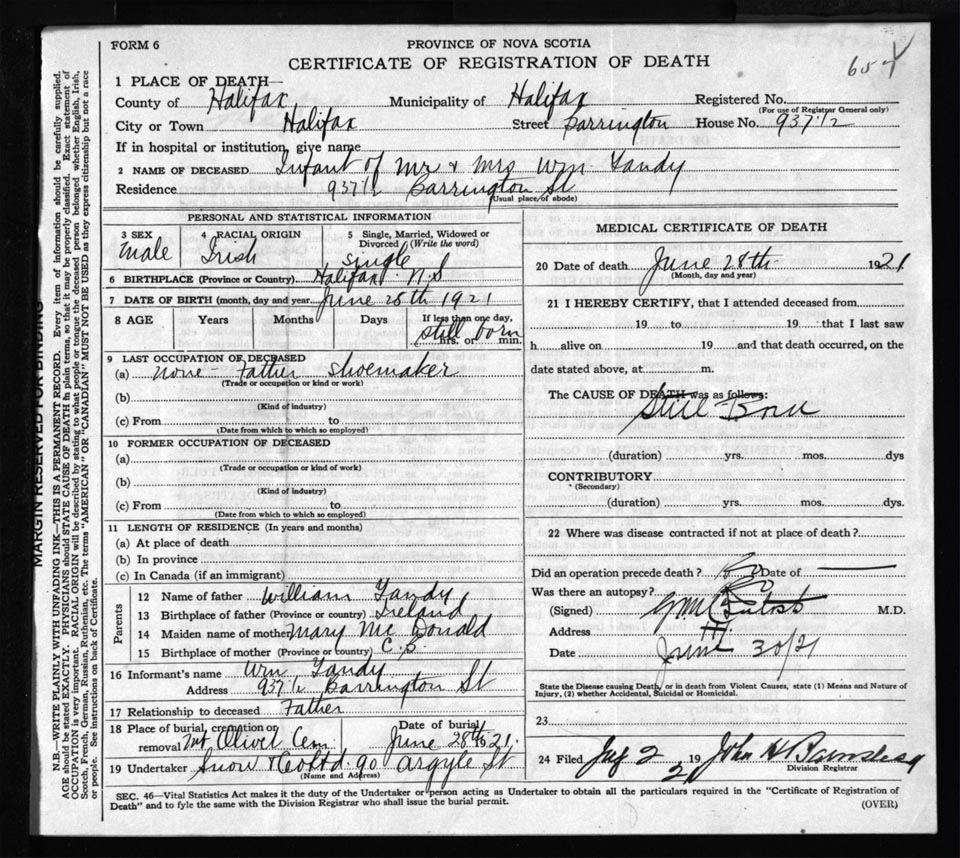 FORM 6
PROVINCE OF NOVA SCOTIA
CERTIFICATE OF REGISTRATION OF DEATH
1 PLACE OF DEATH—
County of Halifax Municipality of Halifax Registered No.
(For use of Registrar General only)
City or Town Halifax Street Barrington House No. 937 1/2
If in hospital or institution, give name
2 NAME OF DECEASED Infant of Mr & Mrs Wm Tandy
Residence 937 1/2 Barrington St
(Usual place of abode)
PERSONAL AND STATISTICAL INFORMATION
3 SEX 4 RACIAL ORIGIN 5 Single, Married, Widowed or
Divorced (Write the word)
Male Irish Single
6 BIRTHPLACE (Province or Country) Halifax N.S
7 DATE OF BIRTH (month, day and year) June 28th 1921
8 AGE Years Months Days If less than one day,
still born
hrs. or min.
9 LAST OCCUPATION OF DECEASED
(a) none - Father shoemaker
(Trade or occupation or kind or work)
(b)
(Kind of industry)
(c) From to
(Date from which to which so employed)
10 FORMER OCCUPATION OF DECEASED
(a)
(Trade or occupation or kind or work)
(b)
(Kind of industry)
(c) From to
(Date from which to which so employed)
11 LENGTH OF RESIDENCE (In years and months)
(a) At place of death
(b) In province
(c) In Canada (if an immigrant)
Parents
12 Name of father William Tandy
13 Birthplace of father (Province or country) Ireland
14 Maiden name of mother Mary Mc Donald
15 Birthplace of mother (Province or country) C.B.
16 Informant's name Wm Tandy
Address 937 1/2 Barrington St
17 Relationship to deceased Father
18 Place of burial, cremation or Date of burial
removal Mt Olivet Cem June 28th 1921
19 Undertaker Snow & Co Ltd. 90 Argyle St
(Name and Address)
MEDICAL CERTIFICATE OF DEATH
20 Date of death June 28th 1921
(Month, day and year)
21 I HEREBY CERTIFY, that I attended deceased from
19 to 19 that I last saw
h alive on 19 and that death occurred, on the
date stated above, at m.
The CAUSE OF DEATH was as follows:
Still Born
(duration) yrs. mos. dys
CONTRIBUTORY
(Secondary)
(duration) yrs. mos. dys.
22 Where was disease contracted if not at place of death?
Did an operation precede death? Date of
Was there an autopsy?
(Signed) M.D.
Address
Date June 30/21
State the Disease causing Death, or in death from Violent Causes, state (1) Means and Nature of
Injury, (2) whether Accidental, Suicidal or Homicidal.
23
24 Filed 2 19 21 John H
Division Registrar
SEC. 46—Vital Statistics Act makes it the duty of the Undertaker or person acting as Undertaker to obtain all the particulars required in the "Certificate of Registration of
Death" and to fyle the same with the Division Registrar who shall issue the burial permit. (OVER)
MARGIN RESERVED FOR BINDING
N.B.—WRITE PLAINLY WITH UNFADING INK—THIS IS A PERMANENT RECORD. Every item of information should be carefully supplied.
AGE should be stated EXACTLY. PHYSICIANS should STATE CAUSE OF DEATH in plain terms, so that it may be properly classified. Exact statement of
OCCUPATION is very important. RACIAL ORIGIN will be described by stating to what people or tongue the deceased person belonged whether English, Irish,
Scotch, French, German, Russian, Ruthenian, etc. The terms "AMERICAN" OR "CANADIAN" MUST NOT BE USED as they express citizenship but not a race
or people. See instructions on back of Certificate.